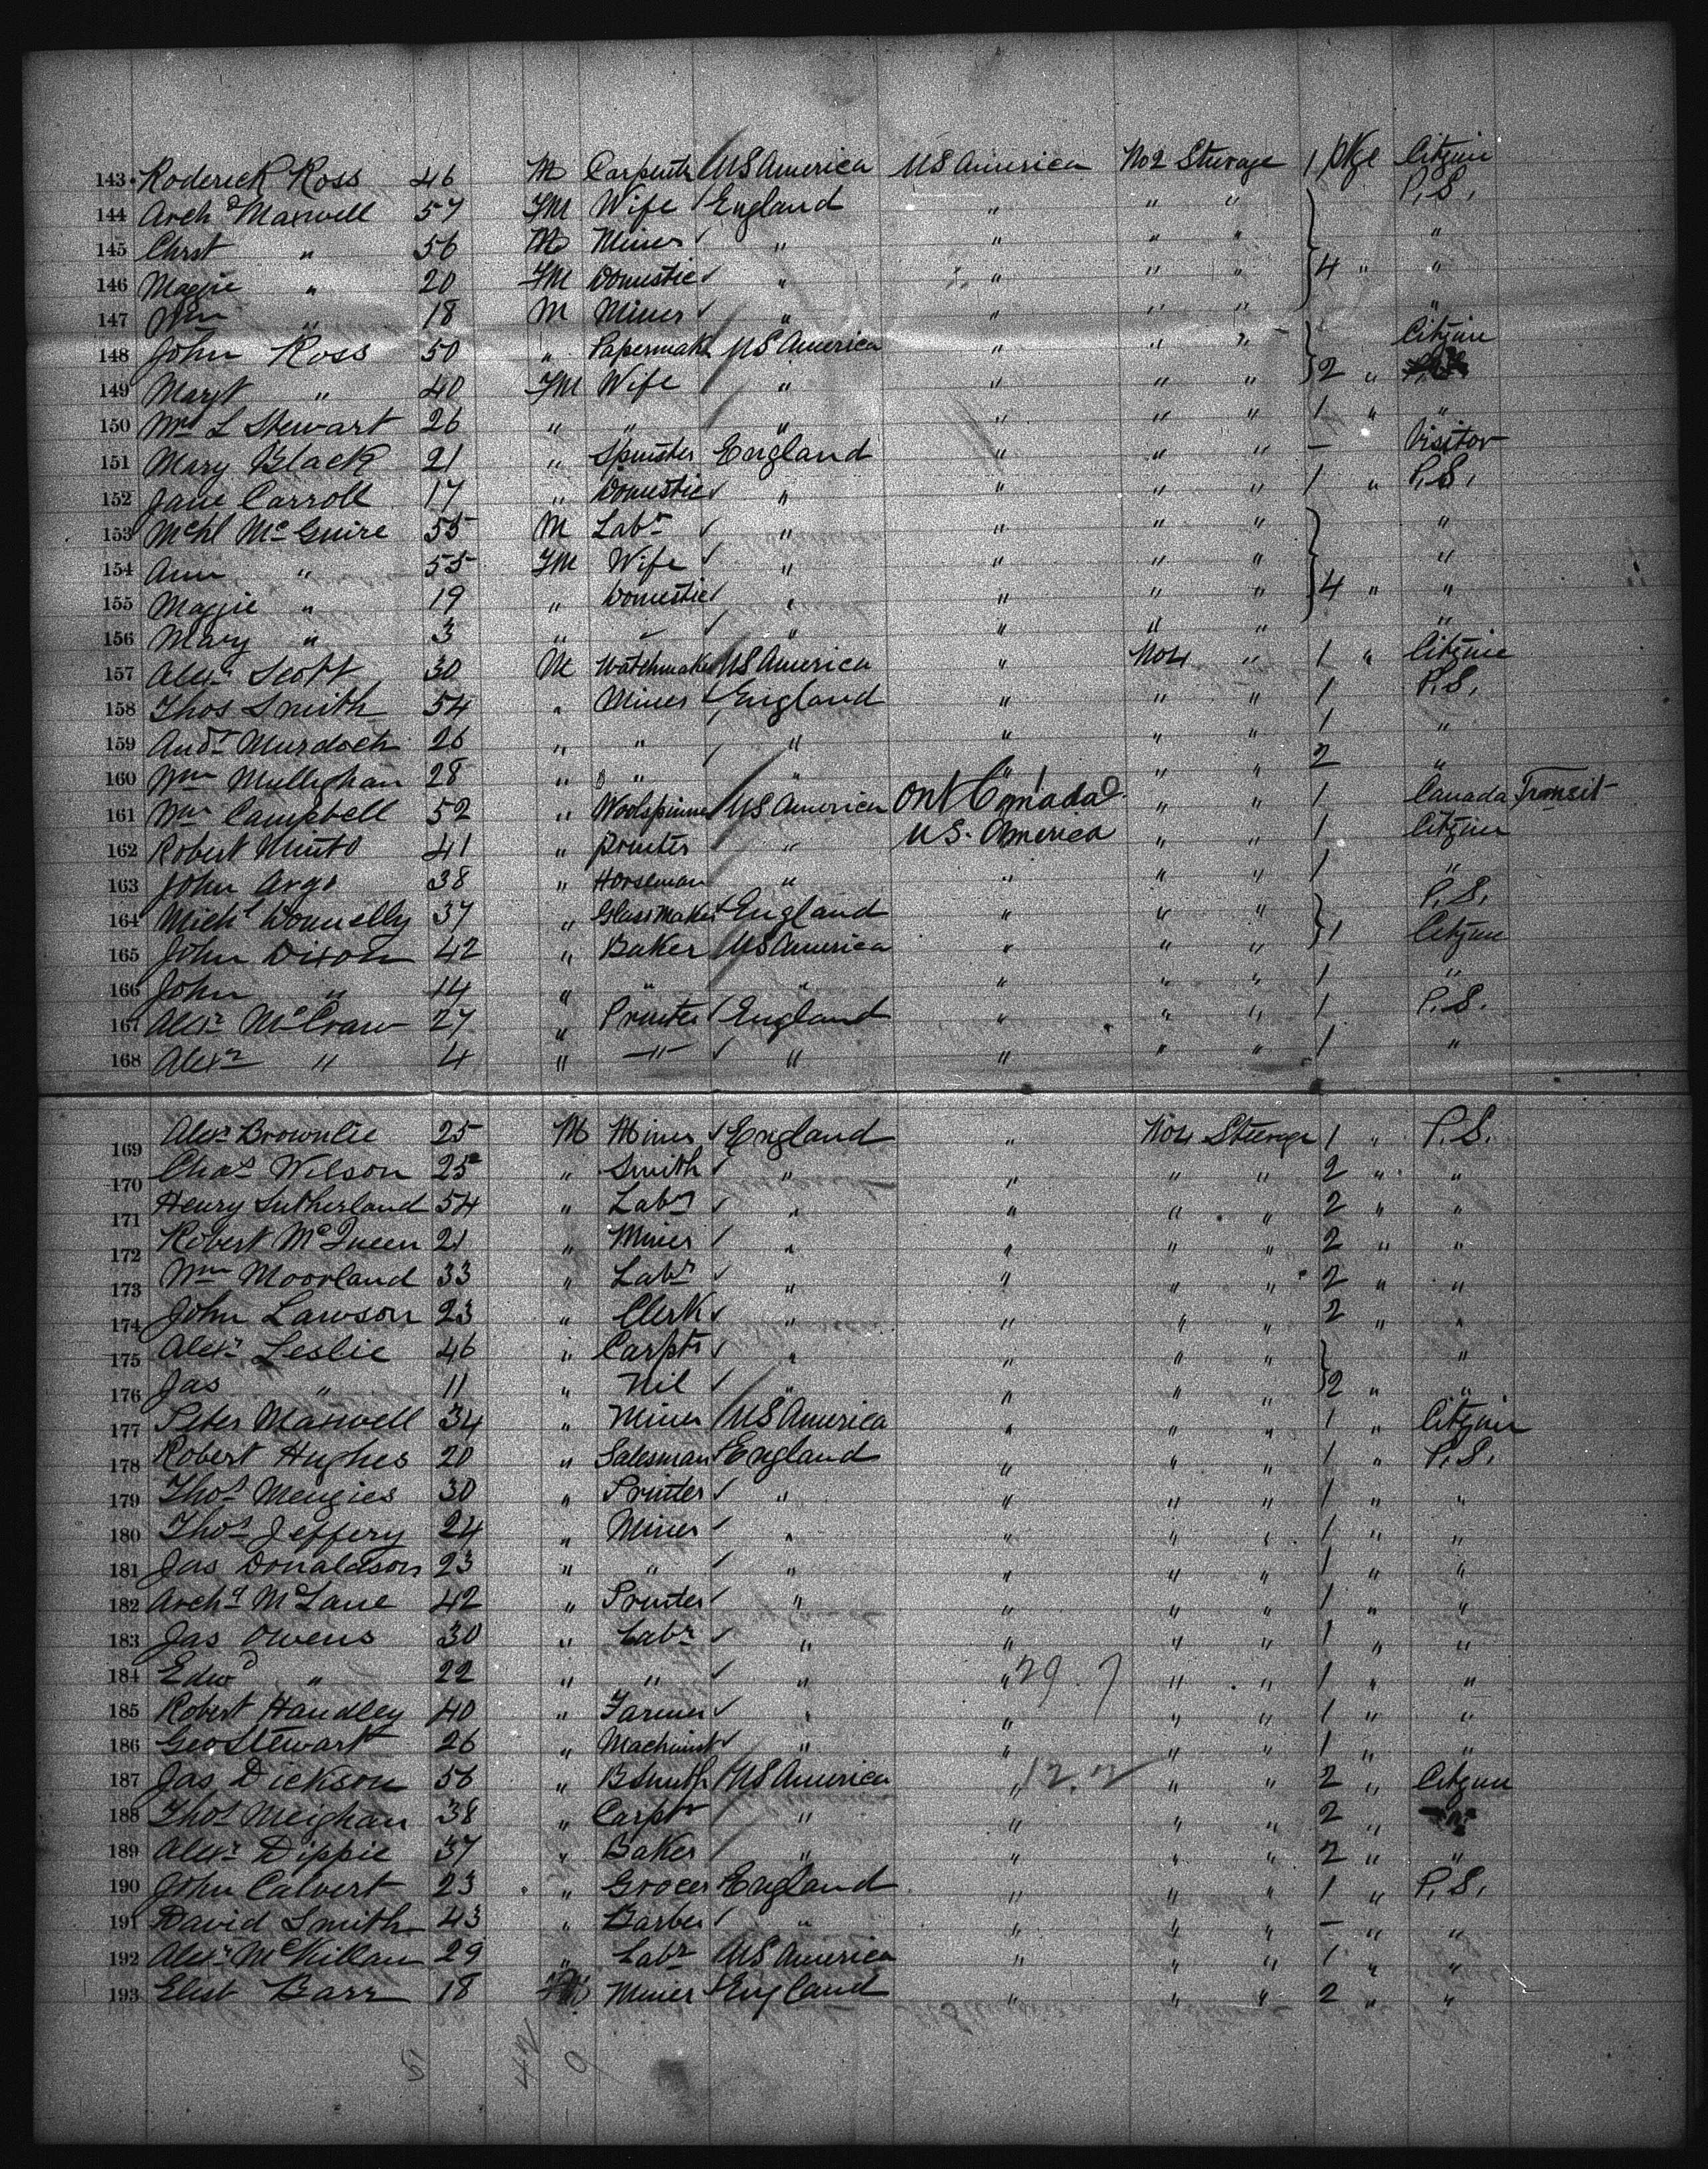 143 Roderick Ross 46 M Carpentr US America US America No 2 Steerage 1 pkge Citizen
144 Archd Maxwell 57 FM Wife England " " " P.S.
145 Chrst " 56 M Miner " " " " "
146 Maggie " 20 FM Domestic " " " " 4 " "
147 Wm " 18 M Miner " " " " "
148 John Ross 50 " Papermakr US America " " " Citizen
149 Margt " 40 FM Wife " " " " 2 "
150 Mrs L Stewart 26 " " " " " " 1 " "
151 Mary Black 21 " Spinster England " " " – Visitor
152 Jane Carroll 17 " Domestic " " " " 1 " P.S.
153 Mchl McGuire 55 M Labr " " " " "
154 Ann " 55 FM Wife " " " " "
155 Maggie " 19 " Domestic " " " " 4 " "
156 Mary " 3 " – " " " " "
157 Alexr Scott 30 M Watchmaker US America " No 4 " 1 " Citizen
158 Thos Smith 54 " Miner England " " " 1 P.S.
159 Andw Murdoch 26 " " " " " " 1 "
160 Wm Mullighan 28 " " " " " " 2 "
161 Wm Campbell 52 " Woolspinner US America Ont Canada " " 1 Canada Transit
162 Robert Minto 41 " Printer " US. America " " 1 Citizen
163 John Argo 38 " Horseman " " " " 1 "
164 Michl Donnelly 37 " Glassmaker England " " " P.S.
165 John Dixon 42 " Baker US America " " " 1 Citizen
166 John " 14 " " " " " " 1 "
167 Alexr McCraw 27 " Printer England " " " 1 P.S.
168 Alexr " 4 " –"– " " " " 1 "
169 Alexr Brownlie 25 M Miner England " No 4 Steerage 1 " P.S.
170 Chas Wilson 25 " Smith " " " " 2 " "
171 Henry Sutherland 54 " Labr " " " " 2 " "
172 Robert McQueen 21 " Miner " " " " 2 " "
173 Wm Moorland 33 " Labr " " " " 2 " "
174 John Lawson 23 " Clerk " " " " 2 " "
175 Alexr Leslie 46 " Carptr " " " " "
176 Jas " 11 " Nil " " " " 2 " "
177 Peter Maxwell 34 " Miner US America " " " 1 " Citizen
178 Robert Hughes 20 " Salesman England " " " 1 " P.S.
179 Thos Menzies 30 " Printer " " " " 1 " "
180 Thos Jeffery 24 " Miner " " " " 1 " "
181 Jas Donaldson 23 " " " " " " 1 " "
182 Archd McLane 42 " Printer " " " " 1 " "
183 Jas Owens 30 " Labr " " " " 1 " "
184 Edwd " 22 " " " " 29.7 " " 1 " "
185 Robert Handley 40 " Farmer " " " " 1 " "
186 Geo Stewart 26 " Machinist " " " " 1 " "
187 Jas Dickson 56 " B Smith US America " " " 2 " Citizen
188 Thos Meighan 38 " Carptr " " " " 2 "
189 Alexr Dippie 37 " Baker " " " " 2 " "
190 John Calvert 23 " Grocer England " " " 1 " P.S.
191 David Smith 43 " Barber " " " " – " "
192 Alexr McKillan 29 " Labr US America " " " 1 " "
193 Elist Barr 18 Miner England " " " 2 " "
51 42 9